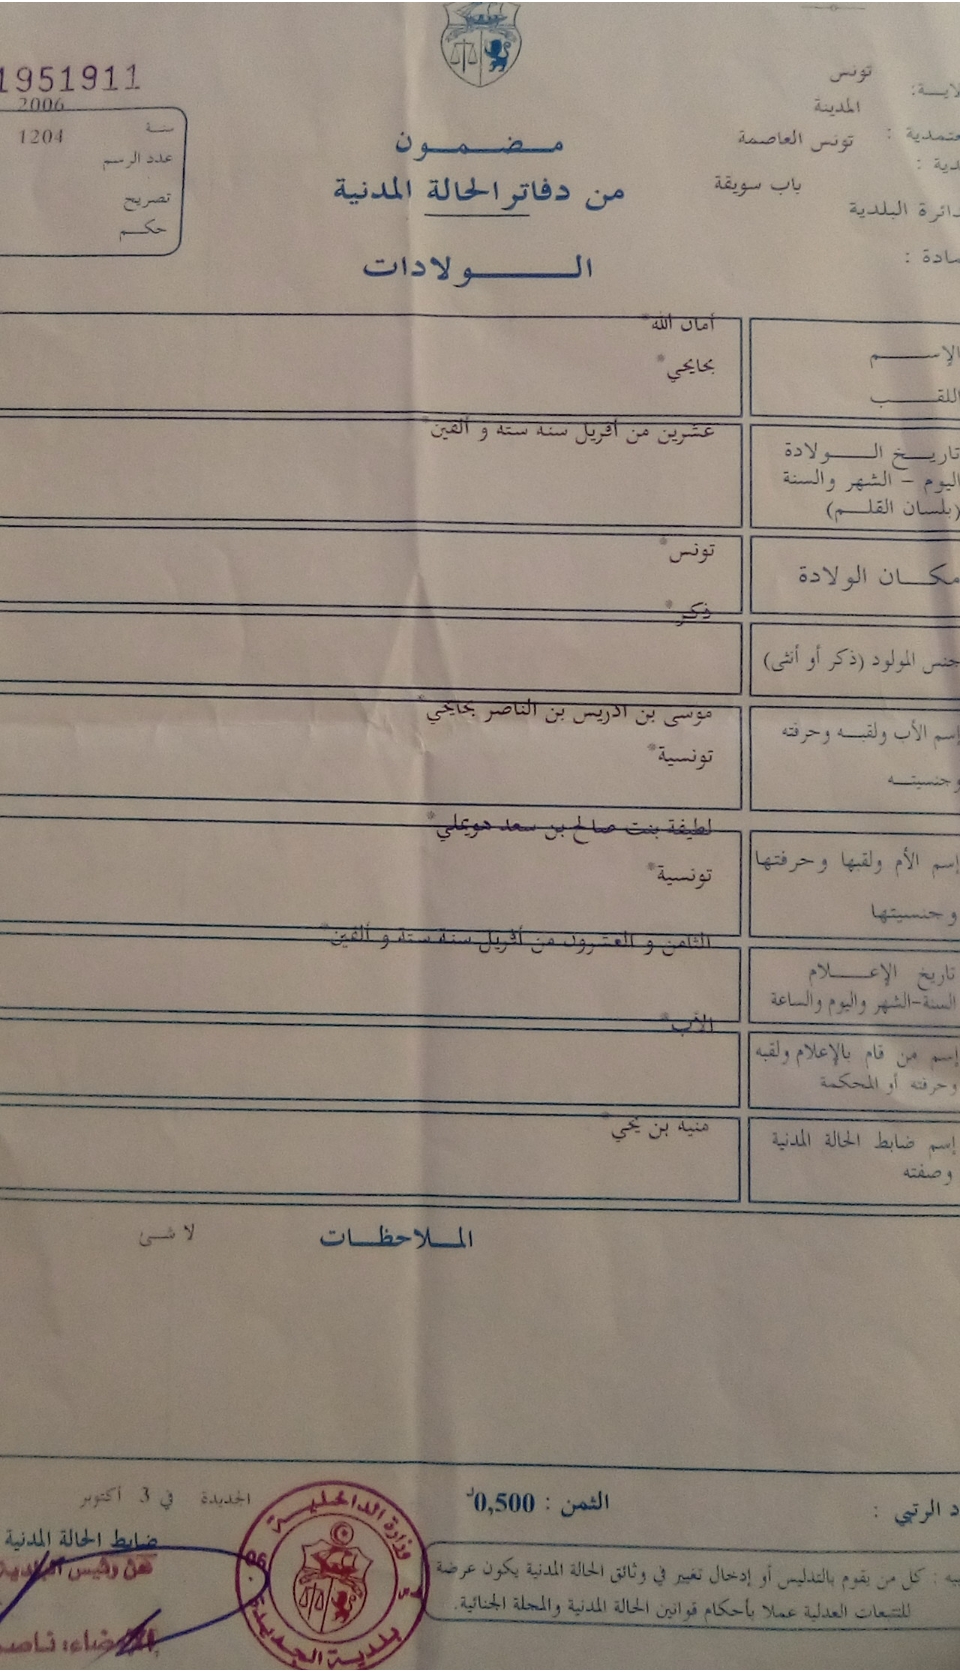 تونس
المدينة
تونس العاصمة
باب سويقة
دائرة البلدية
1951911
2006
سنة
1204
عدد الرسم
تصريح
حكم
مضمون
من دفاتر الحالة المدنية
الولادات
الإسم
أمان الله*
اللقب
بحايحي*
تاريخ الولادة
اليوم - الشهر والسنة
(بلسان القلم)
عشرين من أفريل سنة ستة و ألفين*
مكان الولادة
تونس*
جنس المولود (ذكر أو أنثى)
ذكر*
إسم الأب ولقبه وحرفته
وجنسيته
موسى بن ادريس بن الناصر بحايحي*
تونسية*
إسم الأم ولقبها وحرفتها
وجنسيتها
لطيفة بنت صالح بن سعد هويملي*
تونسية*
تاريخ الإعلام
السنة-الشهر واليوم والساعة
الثامن و العشرون من أفريل سنة ستة و ألفين*
إسم من قام بالإعلام ولقبه
وحرفته أو المحكمة
الأب*
إسم ضابط الحالة المدنية
وصفته
منية بن يحي*
الملاحظات
لا شئ
الثمن : 0,500د
الجديدة في 3 أكتوبر
ضابط الحالة المدنية
عن رئيس البلدية
الإمضاء:
وزارة الداخلية
بلدية الجديدة
06
: كل من يقوم بالتدليس أو إدخال تغيير في وثائق الحالة المدنية يكون عرضة
للتتبعات العدلية عملا بأحكام قوانين الحالة المدنية والمجلة الجنائية.